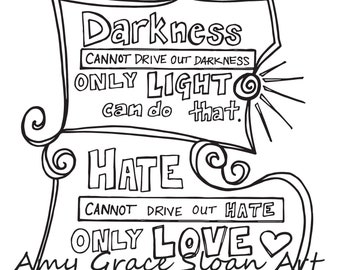 Darkness
CANNOT DRIVE OUT DARKNESS
ONLY LIGHT
can do that.
HATE
CANNOT DRIVE OUT HATE
ONLY LOVE
Amy Grace Sloan Art